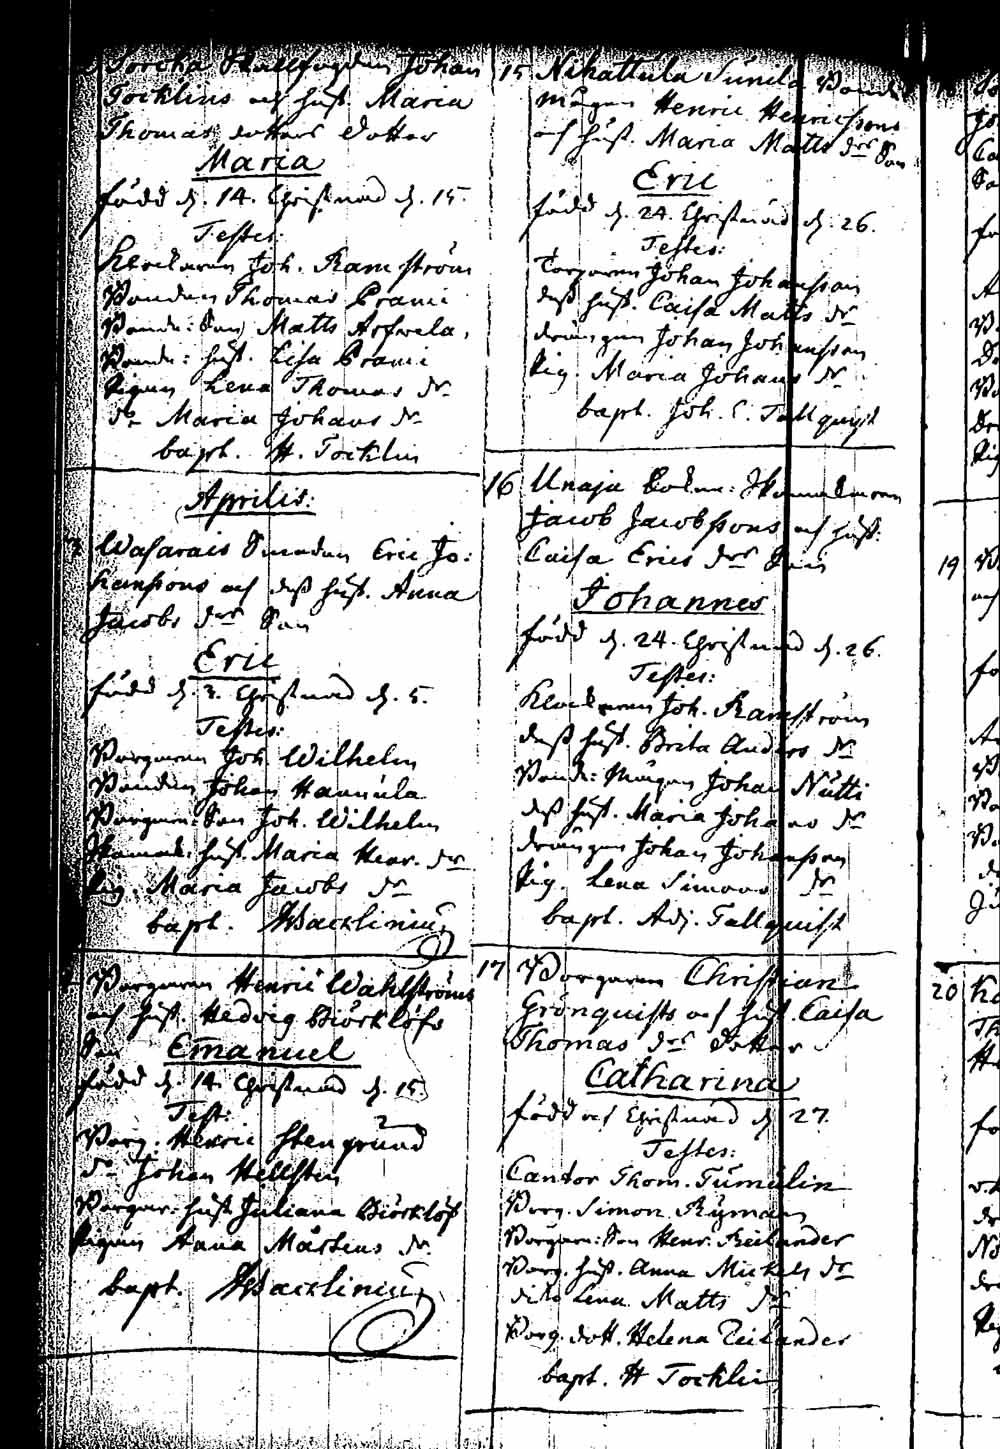 Torcka Skallfogden Johan
Tocklins och hust. Maria
Thomas dotters dotter
Maria
född d. 14. Christnad d. 15.
Testes:
Klockaren Joh. Ramström
Bonden Thomas Prami
Bonde: Son Matts Arfwela,
Bonde: hust. Lisa Prami
Pigan Lena Thomas dr
do Maria Johans dr
bapt. H. Tocklin
Aprilis:
Wasarais Smeden Eric Jo:
hanssons och dess hust. Anna
Jacobs drs Son
Eric
född d. 3. Christnad d. 5.
Testes:
Borgaren Joh. Wilhelm
Bonden Johan Hannula
Borgare: Son Joh. Wilhelm
Skomak: hust. Maria Henr. dr
Pig. Maria Jacobs dr
bapt. Wacklinius
Borgaren Henric Wahlströms
och hust. Hedvig Biörklöfs
Son Emanuel
född d. 14. Christnad d. 15.
Test:
Borg. Henric Stengrund
do Johan Hellsten
Borgar: hust Juliana Biörklöf
Pigan Anna Mårtens dr
bapt. Wacklinius
15 Nihattula Sunila Bonde
mågen Henric Henricssons
och hust. Maria Matts drs Son
Eric
född d. 24. Christnad d. 26.
Testes:
Torparen Johan Johansson
dess hust. Caisa Matts dr
drängen Johan Johansson
Pig. Maria Johans dr
bapt. Joh. C. Tallquist
16 Unaja Sockn: Skomakaren
Jacob Jacobssons och hust:
Caisa Erics drs Son
Johannes
född d. 24. Christnad d. 26.
Testes:
Klockaren Joh. Ramström
dess hust. Brita Anders dr
Bonde: Mågen Johan Nutti
dess hust. Maria Johans dr
drängen Johan Johansson
Pig. Lena Simons dr
bapt. Adj. Tallquist
17 Borgaren Christian
Grönquists och hust. Caisa
Thomas drs Dotter
Catharina
född och Christnad d. 27.
Testes:
Cantor Thom. Tumulin
Borg. Simon Ryman
Borgare: Son Henr. Reilander
Borg. hust. Anna Mickels dr
dito Lena Matts dr
Borg. dott. Helena Reilander
bapt. H Tocklin
19
20